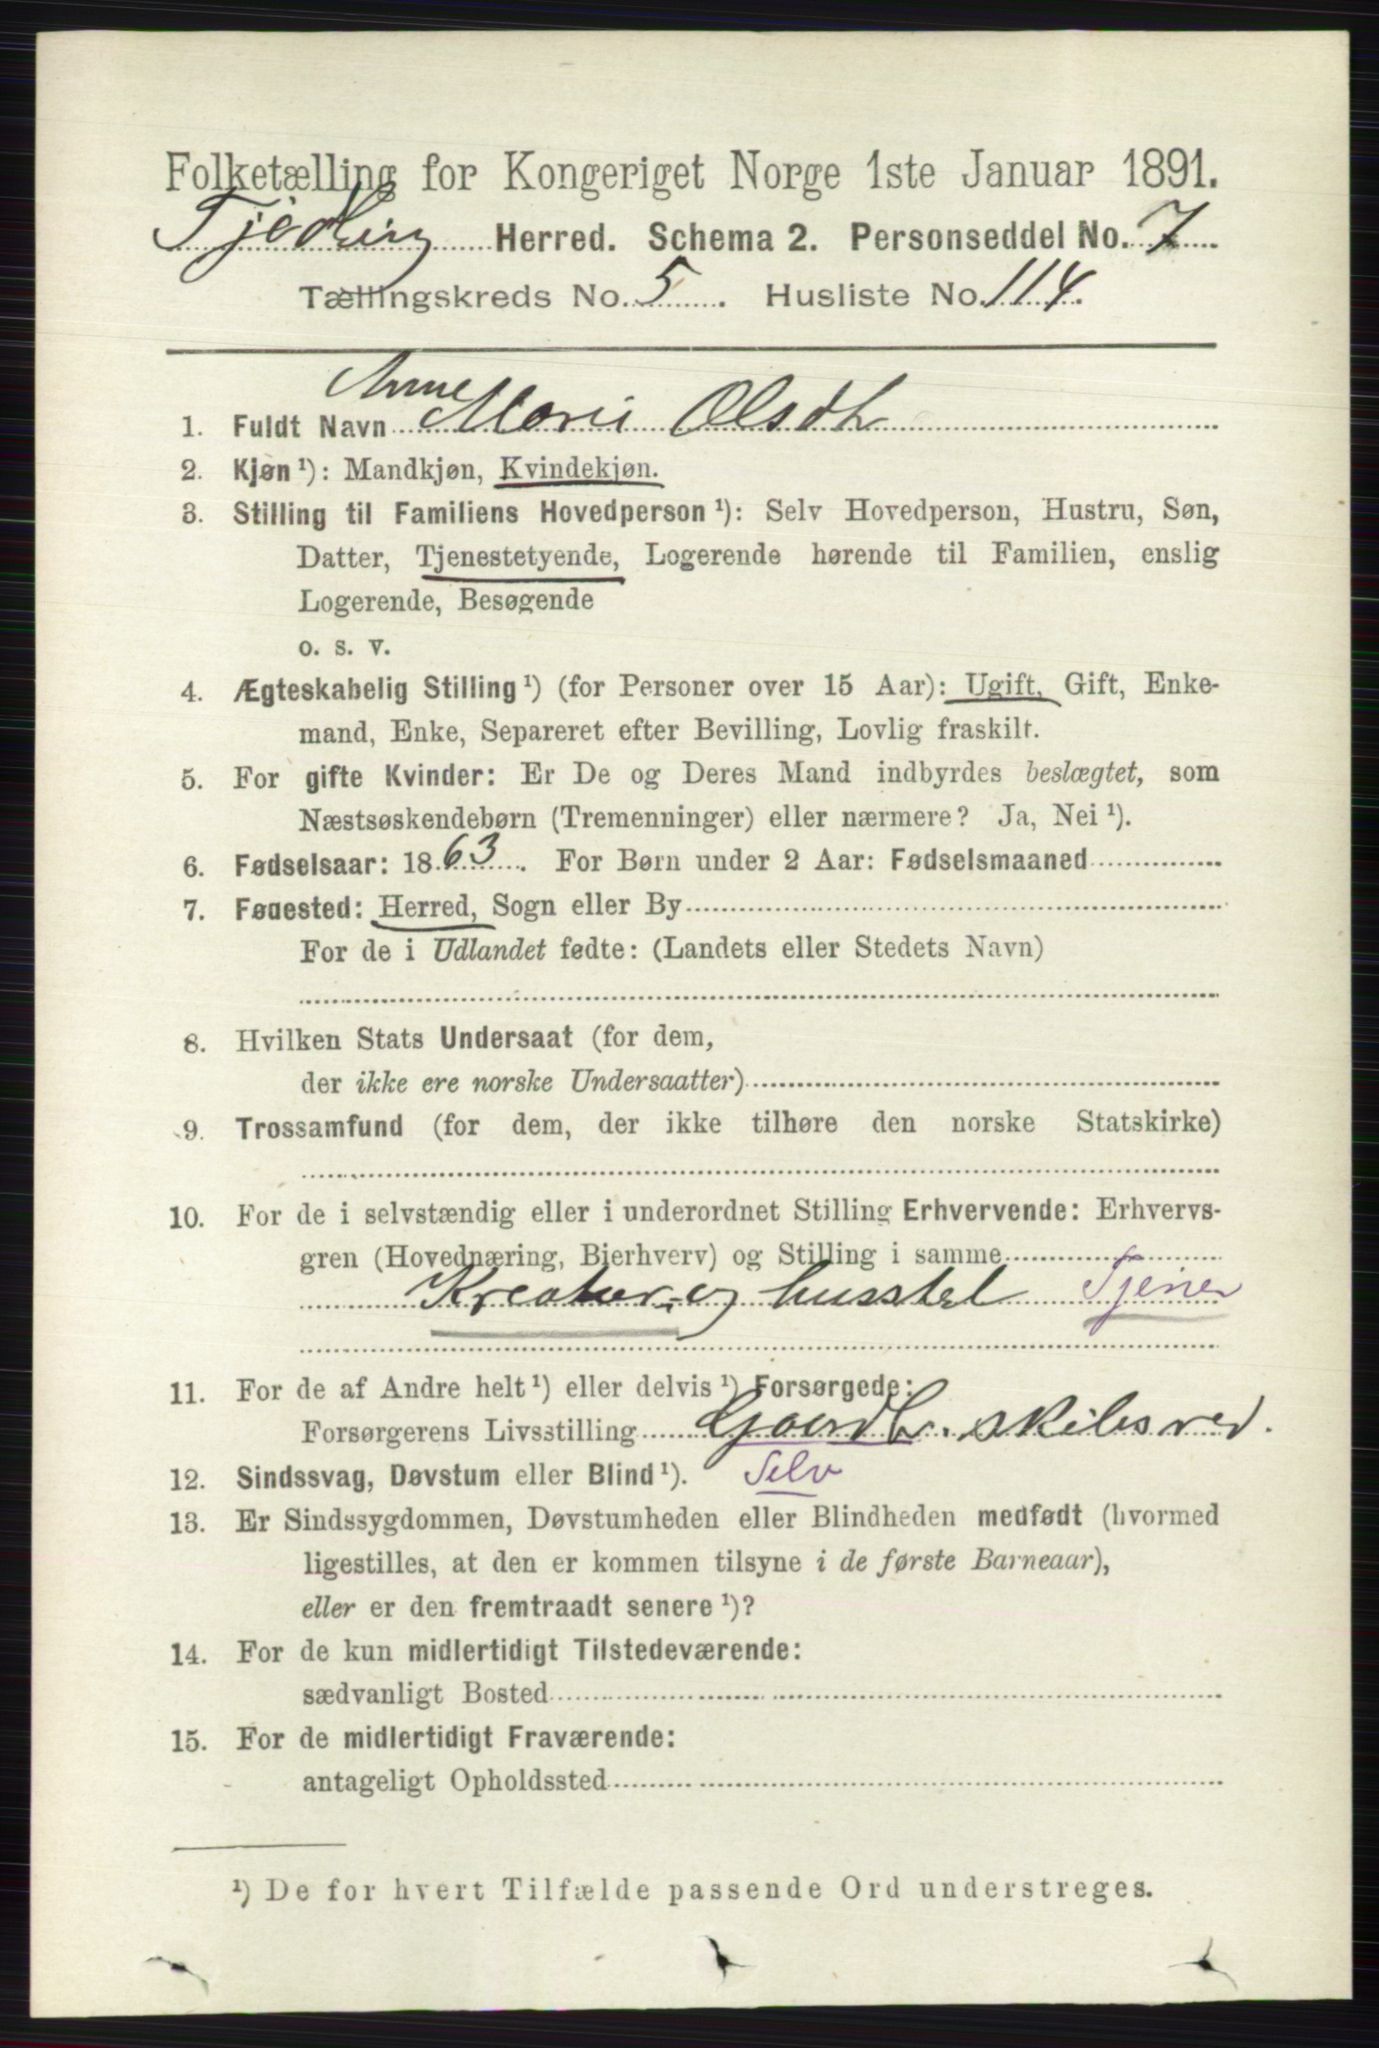 Folketælling for Kongeriget Norge 1ste Januar 1891.
Tjødling Herred. Schema 2. Personseddel No. 7
Tællingskreds No. 5. Husliste No. 114
Anne
1. Fuldt Navn Marie Olsdtr
2. Kjøn ¹): Mandkjøn, Kvindekjøn.
3. Stilling til Familiens Hovedperson ¹): Selv Hovedperson, Hustru, Søn,
Datter, Tjenestetyende, Logerende hørende til Familien, enslig
Logerende, Besøgende
o. s. v.
4. Ægteskabelig Stilling ¹) (for Personer over 15 Aar): Ugift, Gift, Enke-
mand, Enke, Separeret efter Bevilling, Lovlig fraskilt.
5. For gifte Kvinder: Er De og Deres Mand indbyrdes beslægtet, som
Næstsøskendebørn (Tremenninger) eller nærmere? Ja, Nei ¹).
6. Fødselsaar: 1863. For Børn under 2 Aar: Fødselsmaaned
7. Fødested: Herred, Sogn eller By
For de i Udlandet fødte: (Landets eller Stedets Navn)
8. Hvilken Stats Undersaat (for dem,
der ikke ere norske Undersaatter)
9. Trossamfund (for dem, der ikke tilhøre den norske Statskirke)
10. For de i selvstændig eller i underordnet Stilling Erhvervende: Erhvervs-
gren (Hovednæring, Bierhverv) og Stilling i samme
Kreatur- og husstel Tjener
11. For de af Andre helt ¹) eller delvis ¹) Forsørgede:
Forsørgerens Livsstilling Gaardb. skibsred.
12. Sindssvag, Døvstum eller Blind ¹). Selv
13. Er Sindssygdommen, Døvstumheden eller Blindheden medfødt (hvormed
ligestilles, at den er kommen tilsyne i de første Barneaar),
eller er den fremtraadt senere ¹)?
14. For de kun midlertidigt Tilstedeværende:
sædvanligt Bosted
15. For de midlertidigt Fraværende:
antageligt Opholdssted
¹) De for hvert Tilfælde passende Ord understreges.